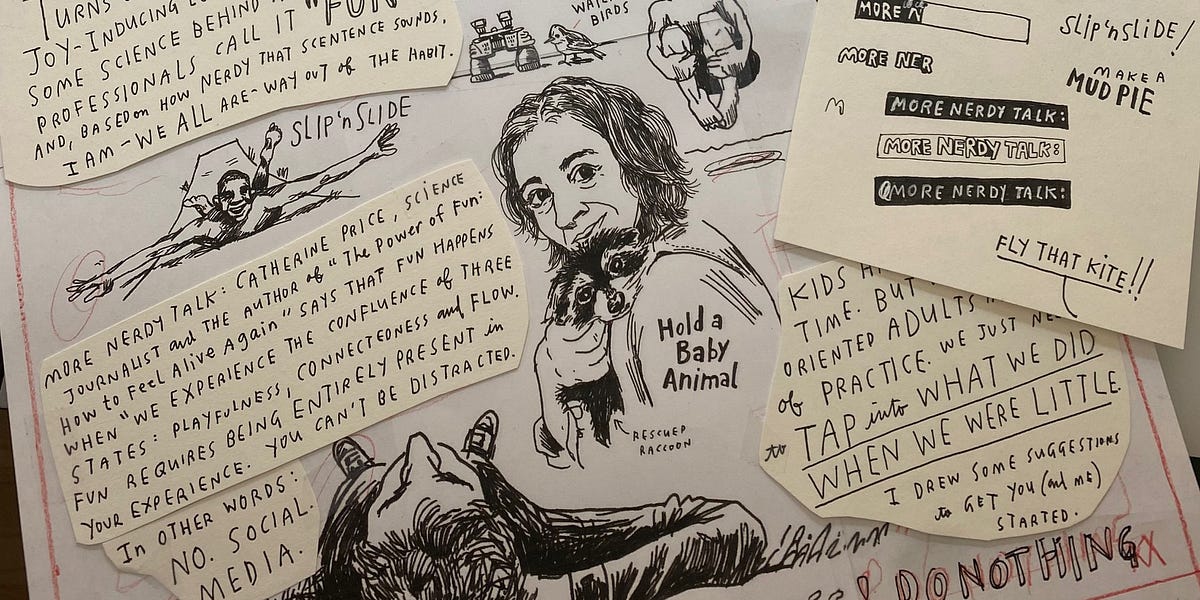 TURNS
JOY-INDUCING
SOME SCIENCE BEHIND
PROFESSIONALS CALL IT "FUN
AND, BASED on HOW NERDY THAT SCENTENCE SOUNDS,
I AM - WE ALL ARE - WAY OUT of THE HABIT.
BIRDS
SLIP 'n SLIDE
MORE NERDY TALK: CATHERINE PRICE, SCIENCE
JOURNALIST and THE AUTHOR of "The Power of Fun:
How to Feel Alive Again" SAYS THAT FUN HAPPENS
WHEN "WE EXPERIENCE THE CONFLUENCE of THREE
STATES: PLAYFULNESS, CONNECTEDNESS and FLOW.
FUN REQUIRES BEING ENTIRELY PRESENT in
YOUR EXPERIENCE. YOU CAN'T BE DISTRACTED.
IN OTHER WORDS:
NO. SOCIAL.
MEDIA.
Hold a
Baby
Animal
RESCUED
RACCOON
MORE N
SLIP 'n SLIDE!
MORE NER
MAKE A
MUD PIE
MORE NERDY TALK:
MORE NERDY TALK:
MORE NERDY TALK:
FLY THAT KITE!!
KIDS
TIME. BUT
ORIENTED ADULTS
of PRACTICE. WE JUST
to TAP into WHAT WE DID
WHEN WE WERE LITTLE
I DREW SOME SUGGESTIONS
to GET YOU (and ME)
STARTED.
DO NOTHING